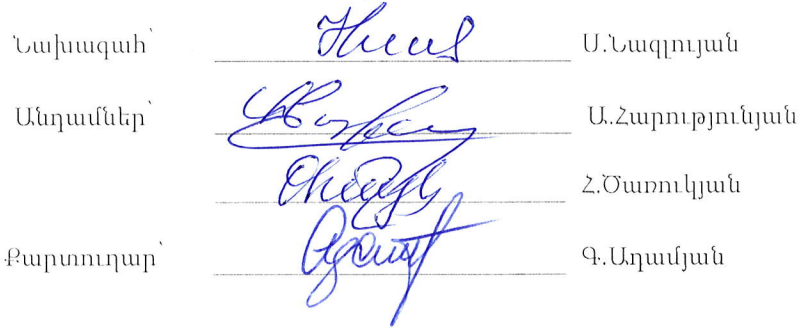 Նախագահ՝ Ս.Նազլույան
Անդամներ՝ Ա.Հարությունյան
Հ.Ծառուկյան
Քարտուղար՝ Գ.Ադամյան